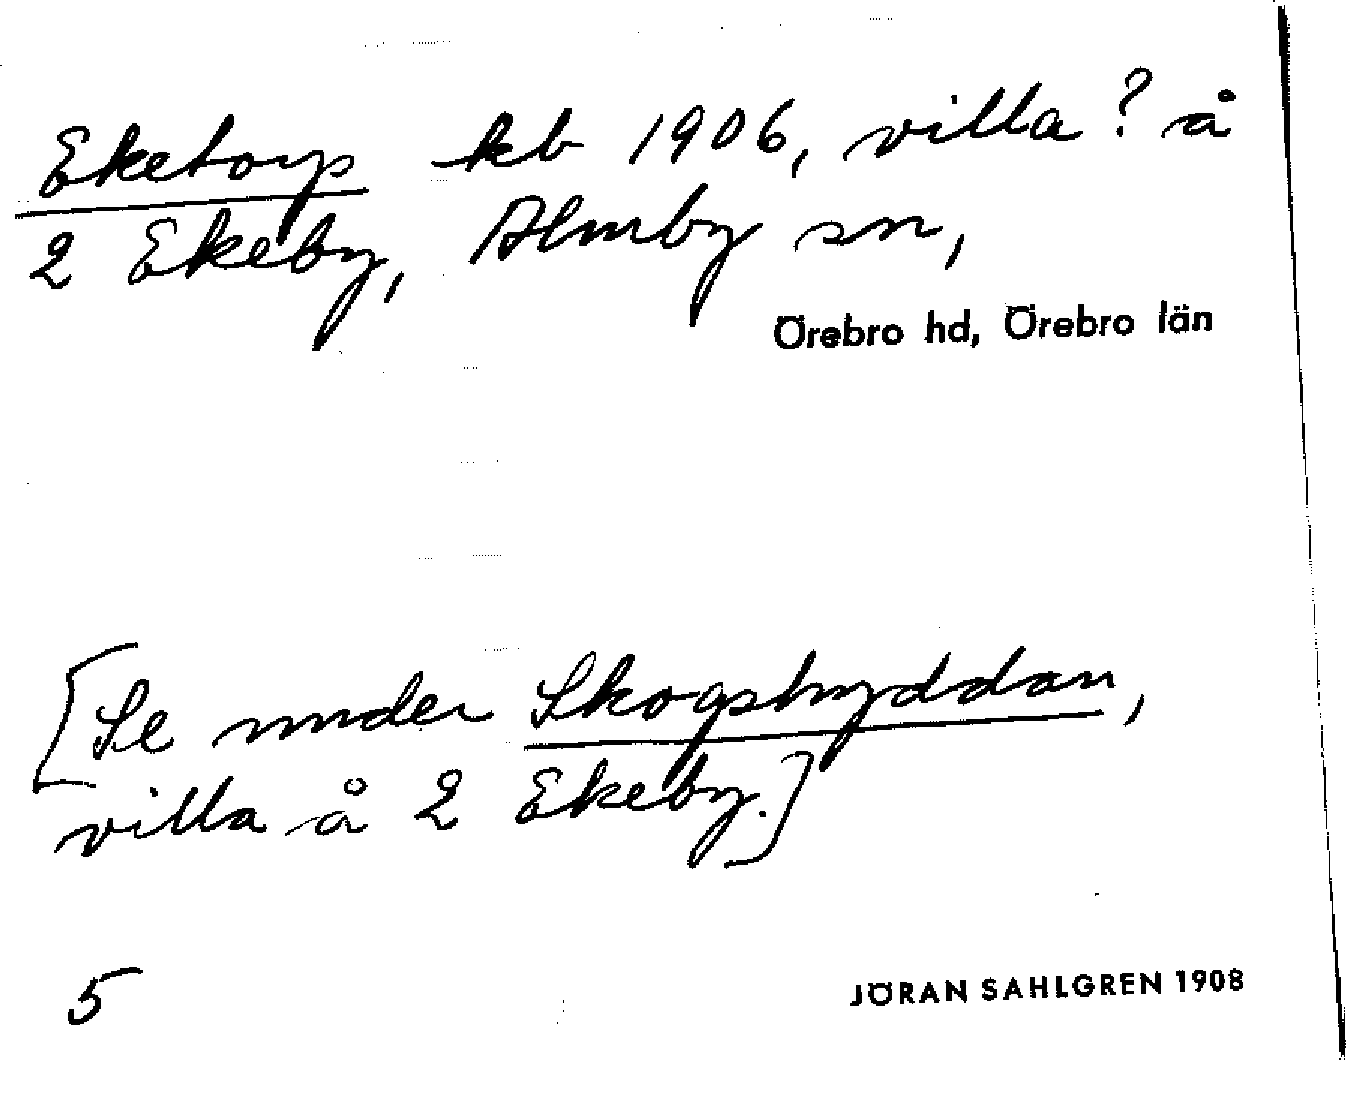 Eketorp kb 1906, villa? å
2 Ekeby, Almby sn,
Örebro hd, Örebro län
[Se under Skogshyddan,
villa å 2 Ekeby.]
5
JÖRAN SAHLGREN 1908